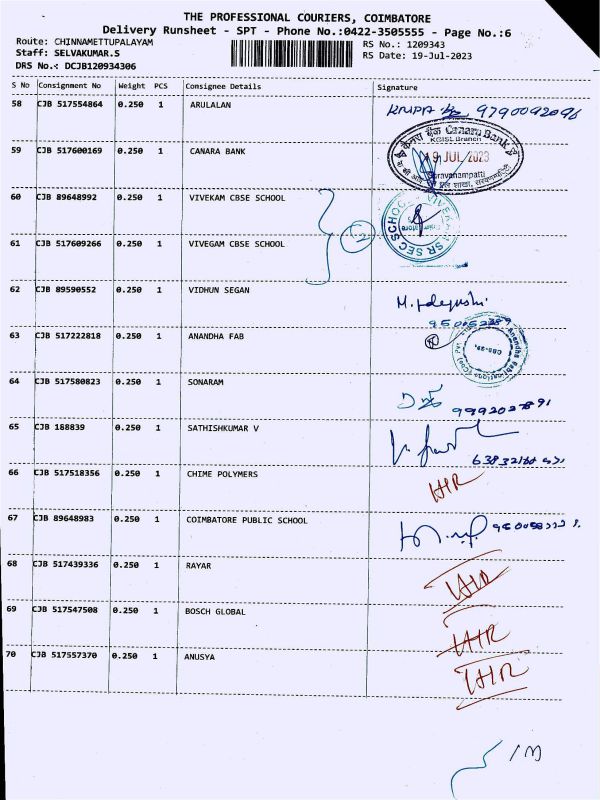 THE PROFESSIONAL COURIERS, COIMBATORE
Delivery Runsheet - SPT - Phone No.:0422-3505555 - Page No.:6
Route: CHINNAMETTUPALAYAM
RS No.: 1209343
Staff: SELVAKUMAR.S
RS Date: 19-Jul-2023
DRS No.: DCJB120934306
S No Consignment No Weight PCS Consignee Details Signature
58 CJB 517554864 0.250 1 ARULALAN
9790092096
59 CJB 517600169 0.250 1 CANARA BANK
Canara Bank
19 JUL 2023
60 CJB 89648992 0.250 1 VIVEKAM CBSE SCHOOL
61 CJB 517609266 0.250 1 VIVEGAM CBSE SCHOOL
2
62 CJB 89590552 0.250 1 VIDHUN SEGAN
63 CJB 517222818 0.250 1 ANANDHA FAB
64 CJB 517580823 0.250 1 SONARAM
65 CJB 188839 0.250 1 SATHISHKUMAR V
66 CJB 517518356 0.250 1 CHIME POLYMERS
67 CJB 89648983 0.250 1 COIMBATORE PUBLIC SCHOOL
68 CJB 517439336 0.250 1 RAYAR
69 CJB 517547508 0.250 1 BOSCH GLOBAL
70 CJB 517557370 0.250 1 ANUSYA